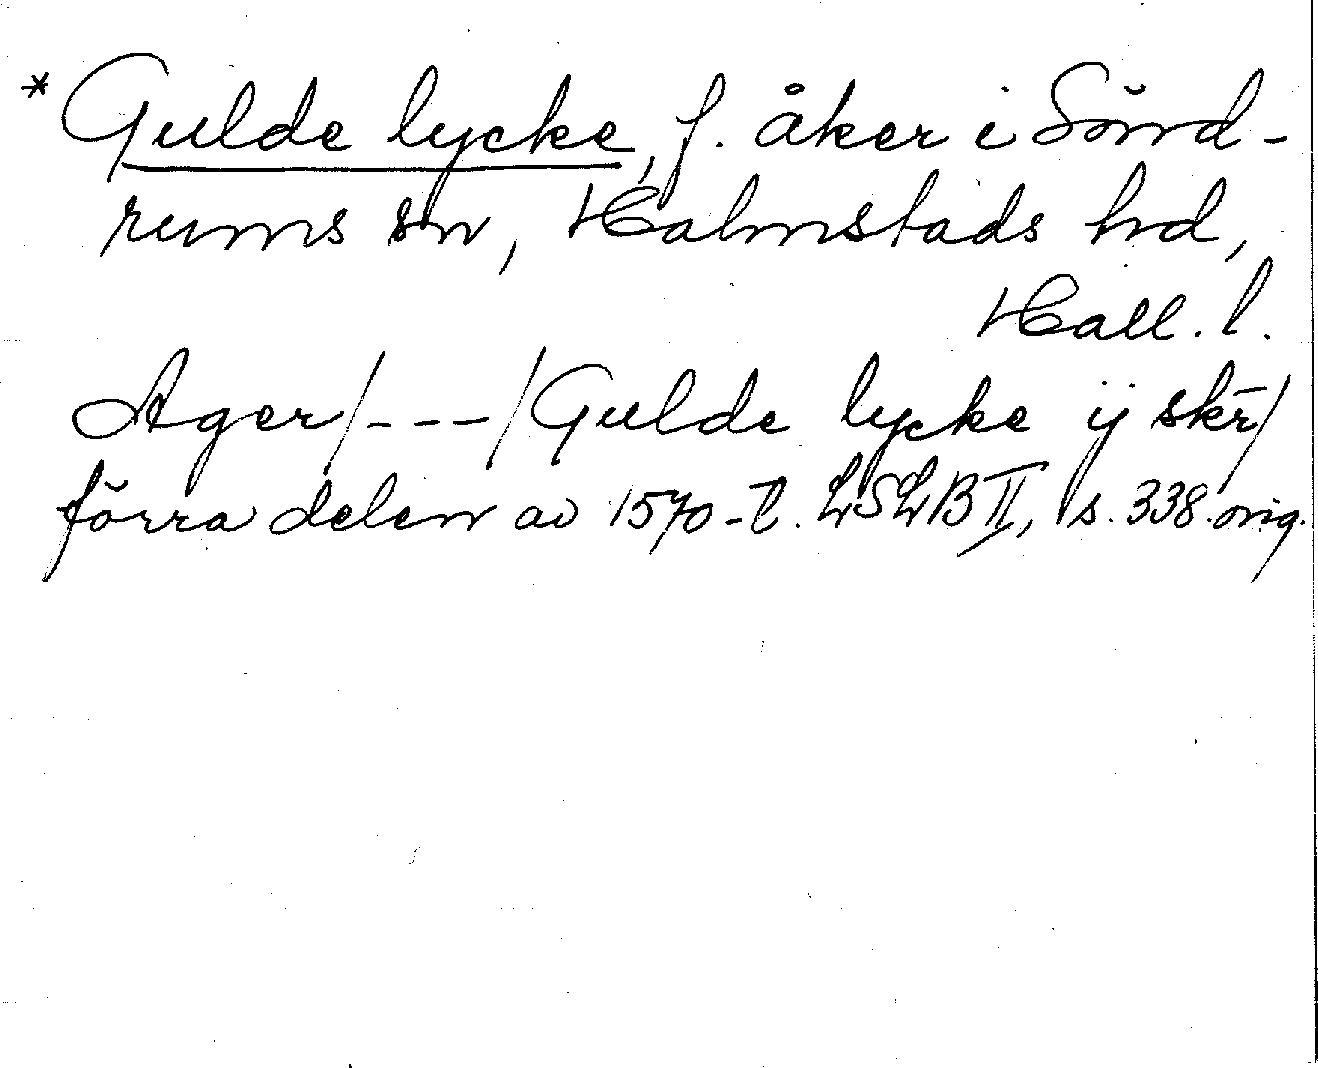 * Gulde lycke, f. åker i Sönd-
rums sn, Halmstads hd,
Hall. l.
Ager/---/Gulde lycke ij skr̄/
förra delen av 1570-t. LSLB II, s. 338. orig.